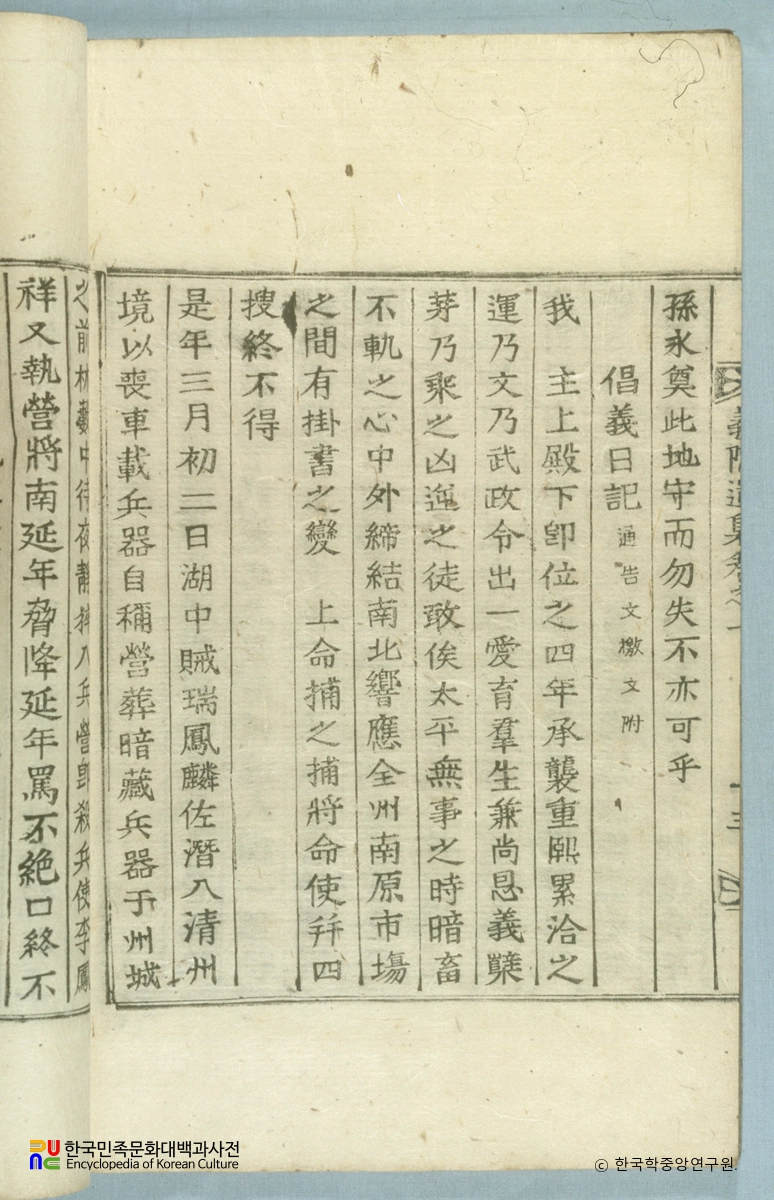 孫永奠此地守而勿失不亦可乎
倡義日記 通告文檄文附
我 主上殿下卽位之四年承襲重熙累洽之
運乃文乃武政令出一愛育羣生兼尚恩義櫱
芽乃乘之凶逆之徒敢俟太平無事之時暗畜
不軌之心中外締結南北響應全州南原市場
之間有掛書之變 上命捕之捕將命使并四
搜終不得
是年三月初二日湖中賊瑞鳳麟佐潛入清州
境以喪車載兵器自稱營葬暗藏兵器于州城
之前林藪中待夜靜 入兵營卽殺兵使李鳳
祥又執營將南延年脅降延年罵不絶口終不
한국민족문화대백과사전
Encyclopedia of Korean Culture
© 한국학중앙연구원